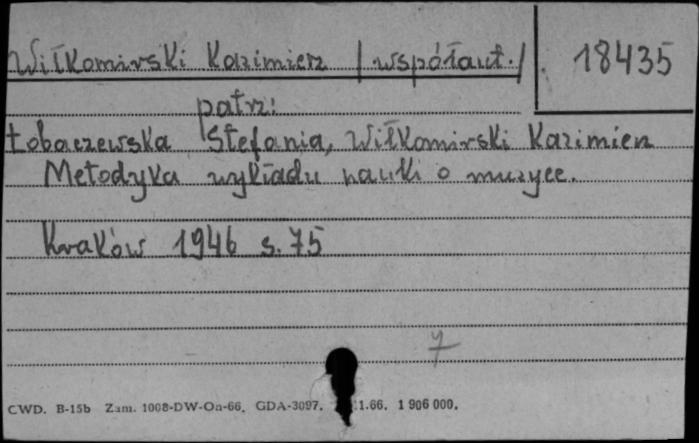 Wiłkomirski Kazimierz /współaut./ 18435
patrz:
Łobaczewska Stefania, Wiłkomirski Kazimierz
Metodyka wykładu nauki o muzyce.
Kraków 1946 s. 75
7
CWD. B-15b Zam. 1008-DW-Oa-66. GDA-3097. 1.66. 1 906 000.